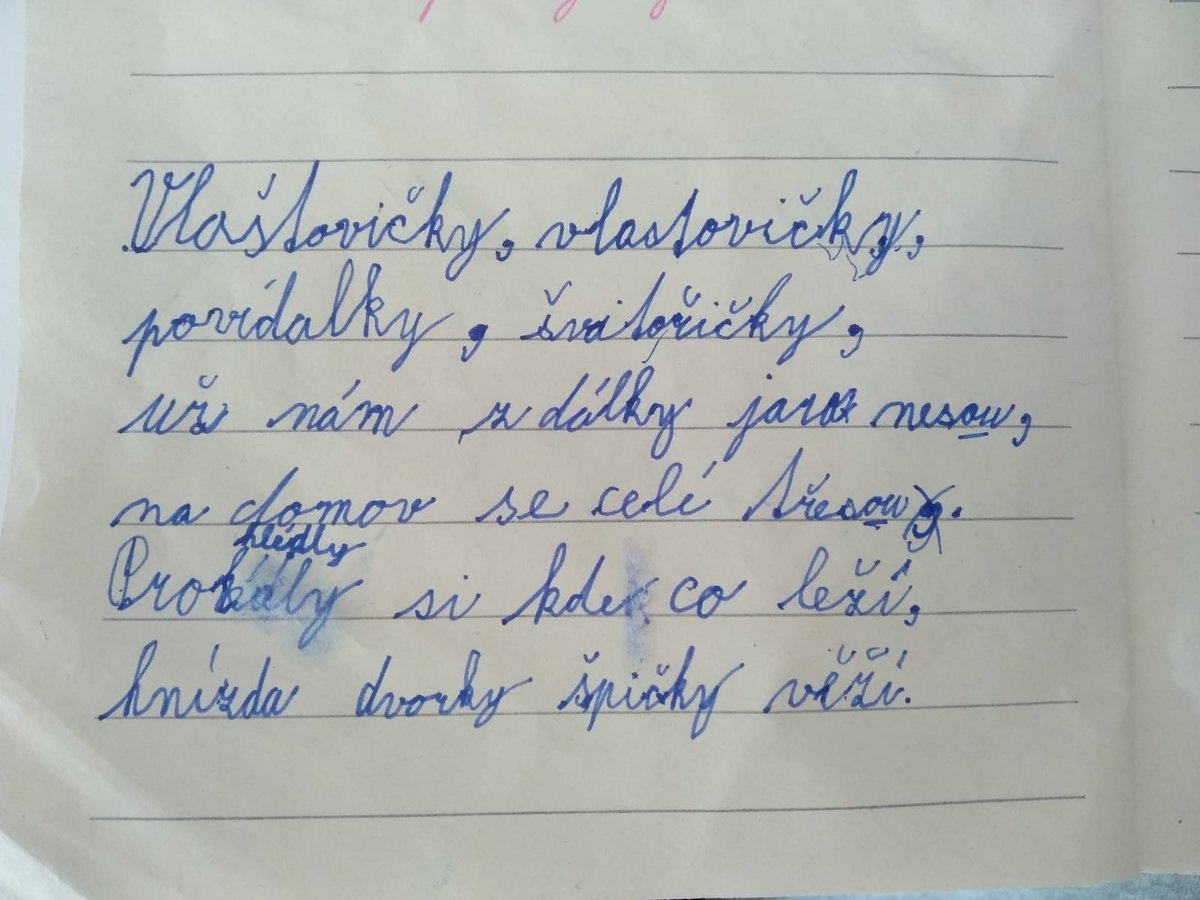 Vlaštovičky, vlastovičky,
povídalky, švitořičky,
už nám z dálky jaro nesou,
na domov se celé třesou.
hlédly
Prohlédly si kde co leží,
hnízda dvorky špičky věží.